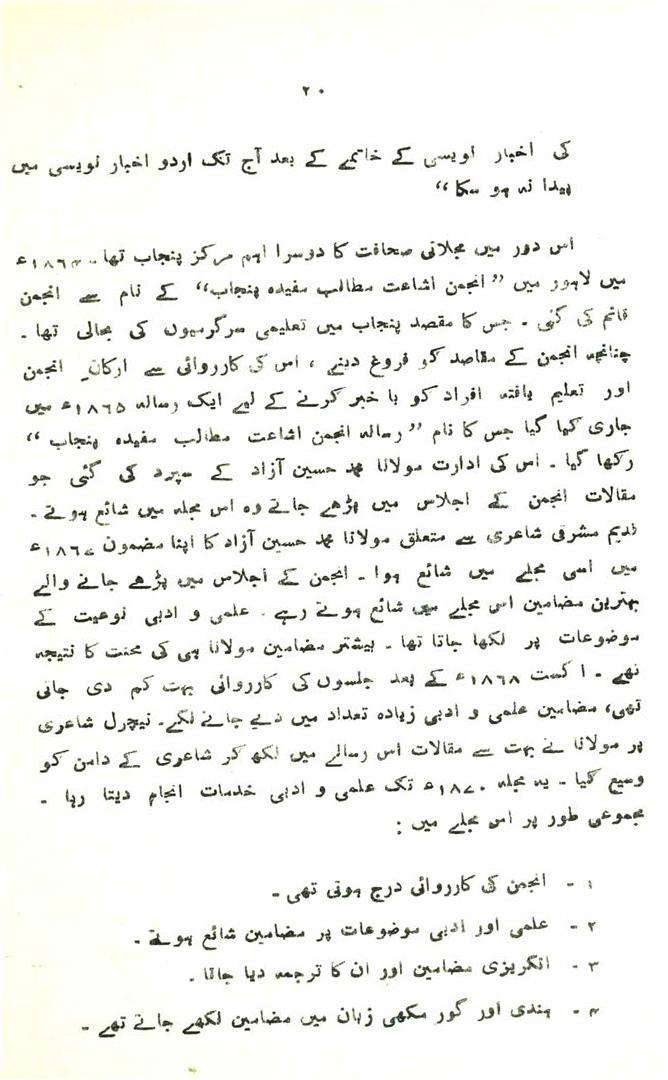 ۲۰
کی اخبار نویسی کے خاتمے کے بعد آج تک اردو اخبار نویسی میں
پیدا نہ ہو سکا“
اس دور میں مجلاتی صحافت کا دوسرا اہم مرکز پنجاب تھا۔ ۱۸۶۴ء
میں لاہور میں ”انجمن اشاعت مطالب مفیدہ پنجاب“ کے نام سے انجمن
قائم کی گئی ۔ جس کا مقصد پنجاب میں تعلیمی سرگرمیوں کی بحالی تھا ۔
چنانچہ انجمن کے مقاصد کو فروغ دینے ، اس کی کارروائی سے ارکانِ انجمن
اور تعلیم یافتہ افراد کو با خبر کرنے کے لیے ایک رسالہ ۱۸۶۵ء میں
جاری کیا گیا جس کا نام ”رسالہ انجمن اشاعت مطالب مفیدہ پنجاب“
رکھا گیا ۔ اس کی ادارت مولانا محمد حسین آزاد کے سپرد کی گئی جو
مقالات انجمن کے اجلاس میں پڑھے جاتے وہ اس مجلہ میں شائع ہوتے ۔
قدیم مشرقی شاعری سے متعلق مولانا محمد حسین آزاد کا اپنا مضمون ۱۸۶۷ء
میں اسی مجلے میں شائع ہوا ۔ انجمن کے اجلاس میں پڑھے جانے والے
بہترین مضامین اس مجلے میں شائع ہوتے رہے ۔ علمی و ادبی نوعیت کے
موضوعات پر لکھا جاتا تھا ۔ بیشتر مضامین مولانا ہی کی محنت کا نتیجہ
تھے ۔ اگست ۱۸۶۸ء کے بعد جلسوں کی کارروائی بہت کم دی جاتی
تھی، مضامین علمی و ادبی زیادہ تعداد میں دیے جانے لگے۔ نیچرل شاعری
پر مولانا نے بہت سے مقالات اس رسالے میں لکھ کر شاعری کے دامن کو
وسیع کیا ۔ یہ مجلہ ۱۸۷۰ء تک علمی و ادبی خدمات انجام دیتا رہا ۔
مجموعی طور پر اس مجلے میں :
۱ ۔ انجمن کی کارروائی درج ہوتی تھی ۔
۲ ۔ علمی اور ادبی موضوعات پر مضامین شائع ہوتے ۔
۳ ۔ انگریزی مضامین اور ان کا ترجمہ دیا جاتا ۔
۴ ۔ ہندی اور گور مکھی زبان میں مضامین لکھے جاتے تھے ۔